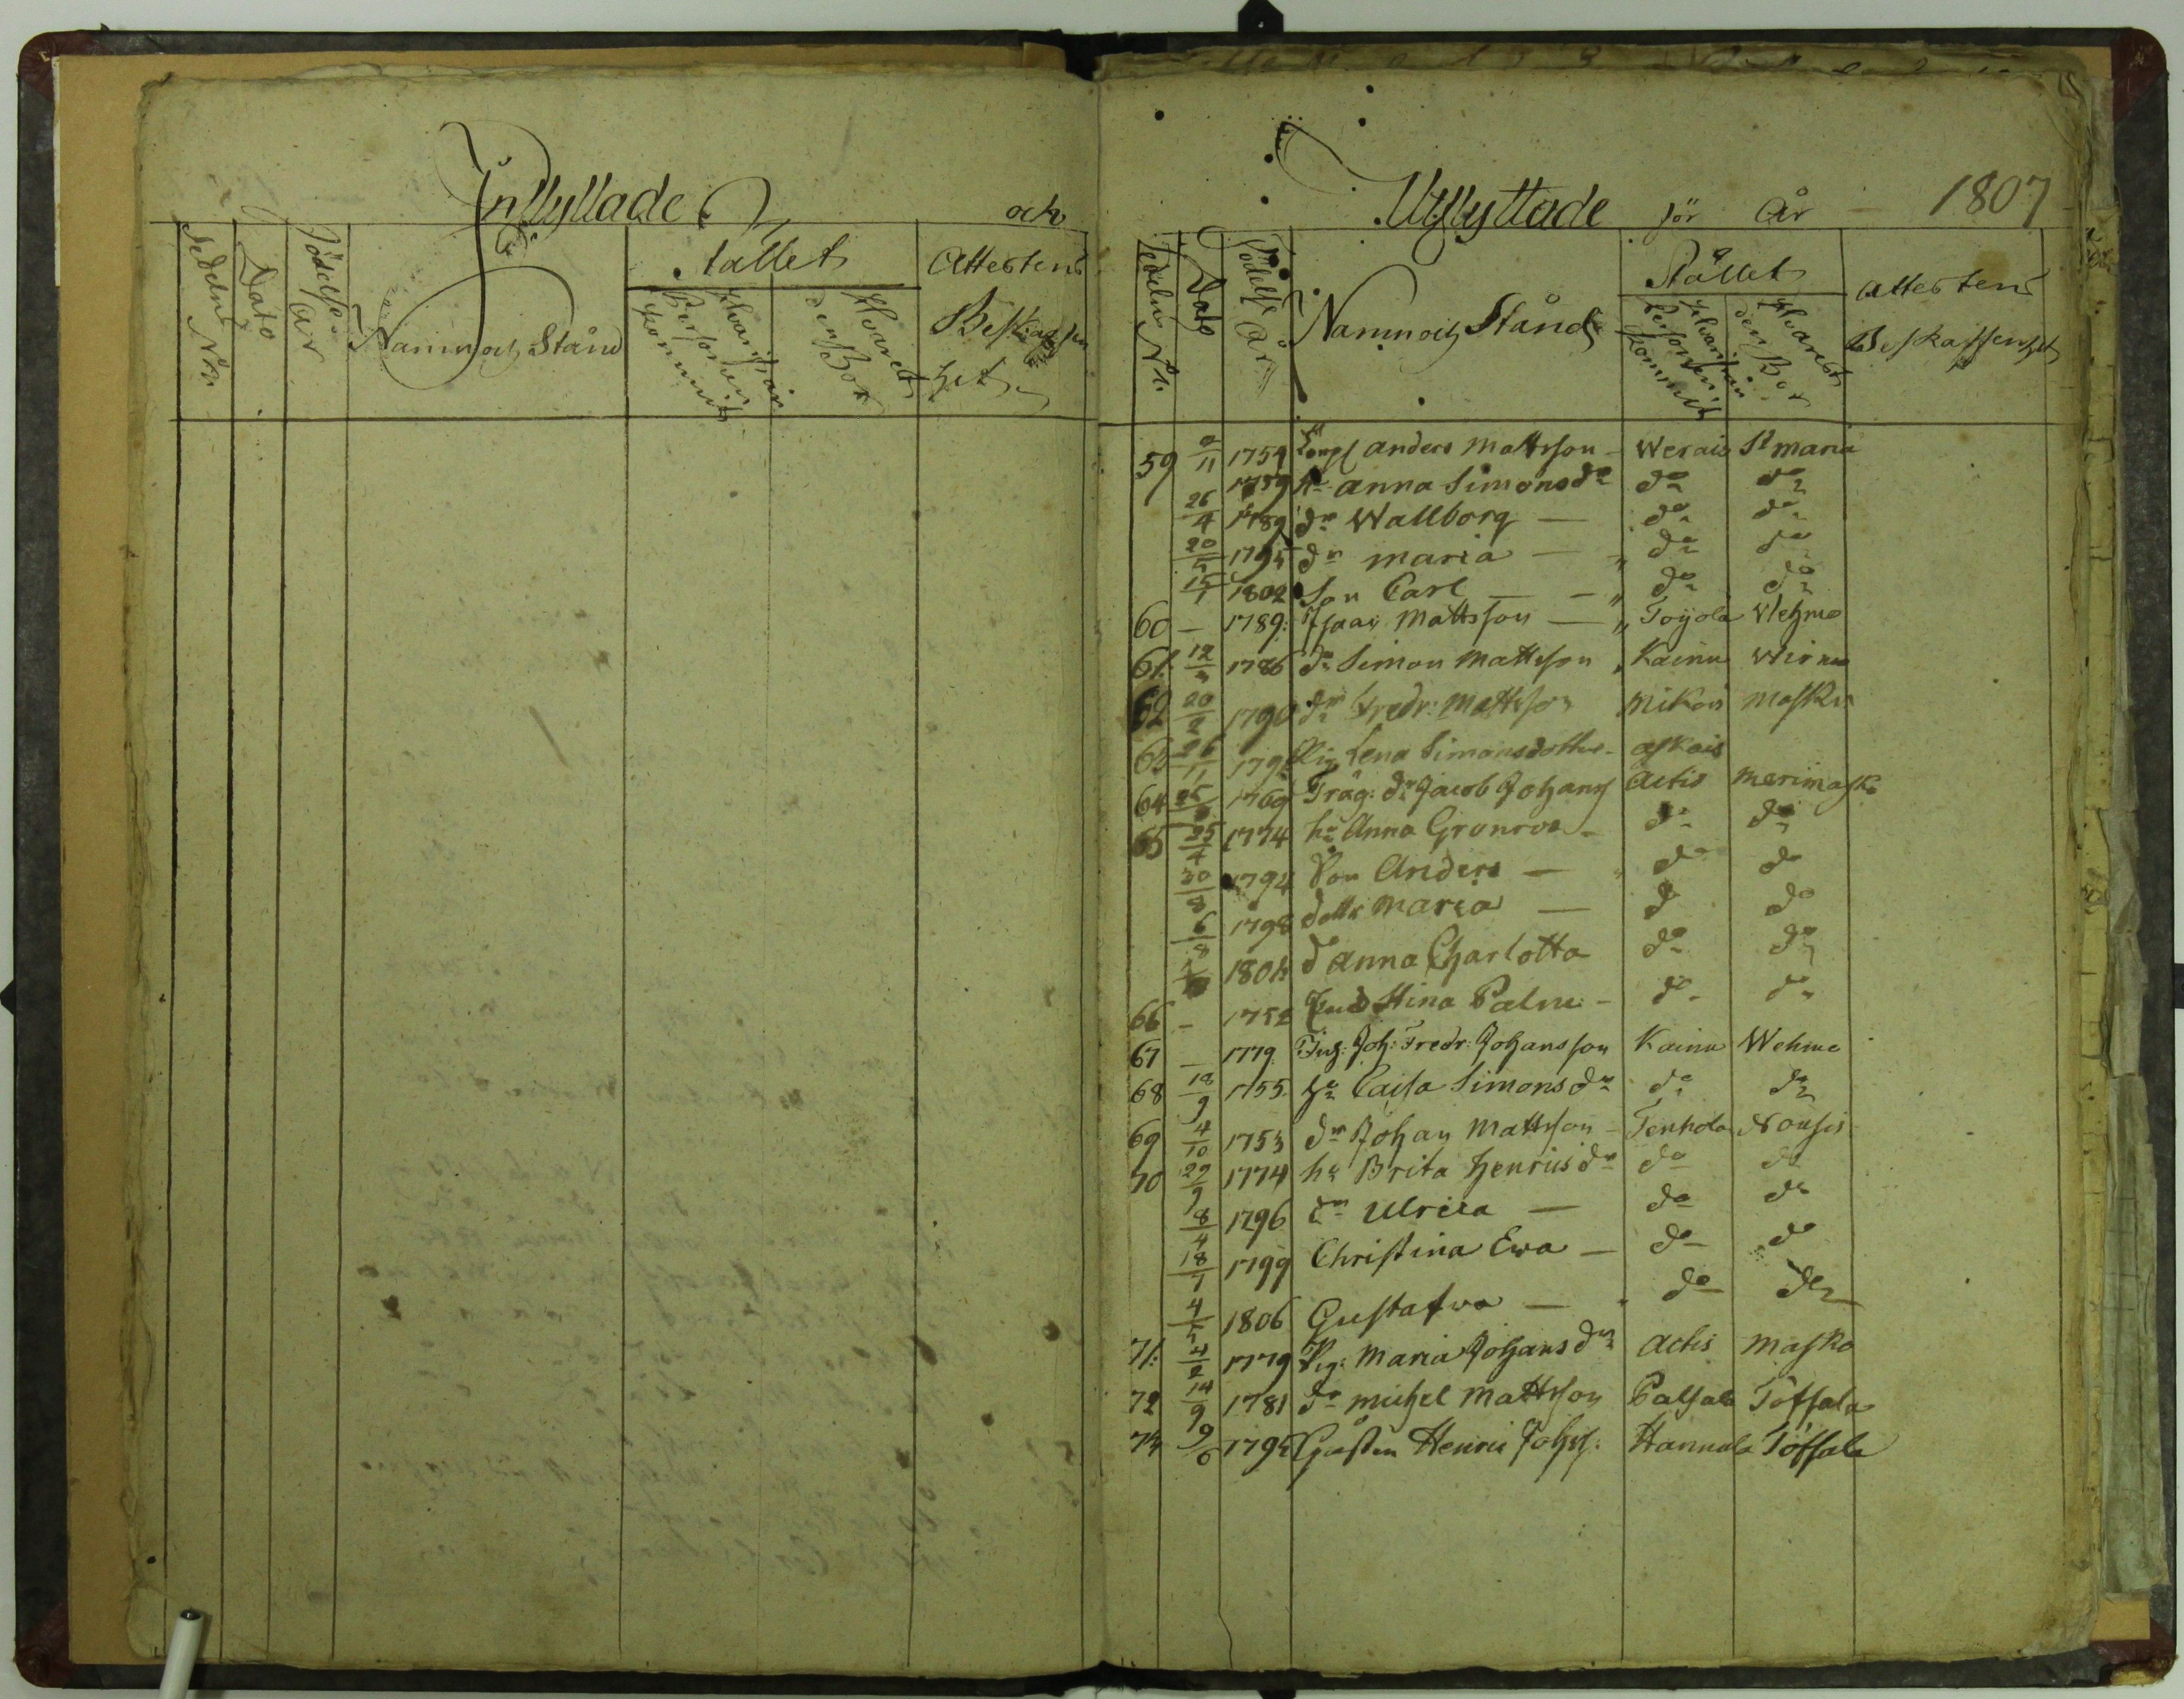 Inflyttade och
Sedelns Nr
Dato
Födelse År
Namn och Stånd
Stället
Hvarifrån Personen kommit
Hvarest den Bor
Attestens Beskaffenhet
Utflyttade för År 1807
Sedelns Nr.
Dato
Födelse År
Namn och Stånd
Stället
Hvarifrån Personen kommit
Hvarest den Bor
Attestens Beskaffenhet
59 /11 1754 Anders Mattsson - Werais St Maria
1759 hu Anna Simonsdr do do
26/4 1789 dr Wallborg — do do
20/5 1795 dr Maria — " do do
15/1 1802 Son Carl — " do do
60 — 1789. Isaac Mattsson — " Toijola Wehmo
61. 12/ 1786 dr Simon Mattsson Kainu Wirmo
62 20/2 1790 dr Fredr: Mattsson Mikois Masku
63 26/11 179 Pig Lena Simonsdotter - Askais
64 25/ 1769 Träg: dr Jacob Johans Actis Merimask
65 25/4 1774 hu Anna Gronroos - do do
30/8 1794 Son Anders — do do
6/8 1798 dottr Maria — do do
1804 d Anna Charlotta do do
66 - 1752 Stina Palm - do do
67 — 1779. Joh: Fredr: Johansson Kainu Wehmo
68 18/9 1755. hu Caisa Simonsdr do do
69 4/10 1753 dr Johan Mattsson - Tenhola Nousis
70 29/9 1774 hu Brita Henricsdr do do
8/4 1796 dr Ulrica — do do
18/7 1799 Christina Ewa — do do
4/5 1806 Gustafwa — do do
71: 4/2 1779 Pig: Maria Johansdr Actis Masko
72 14/9 1781 dr Michel Mattsson Palsala Töfsala
74 9/6 1795 Henric Johss. Hannula Töfsala